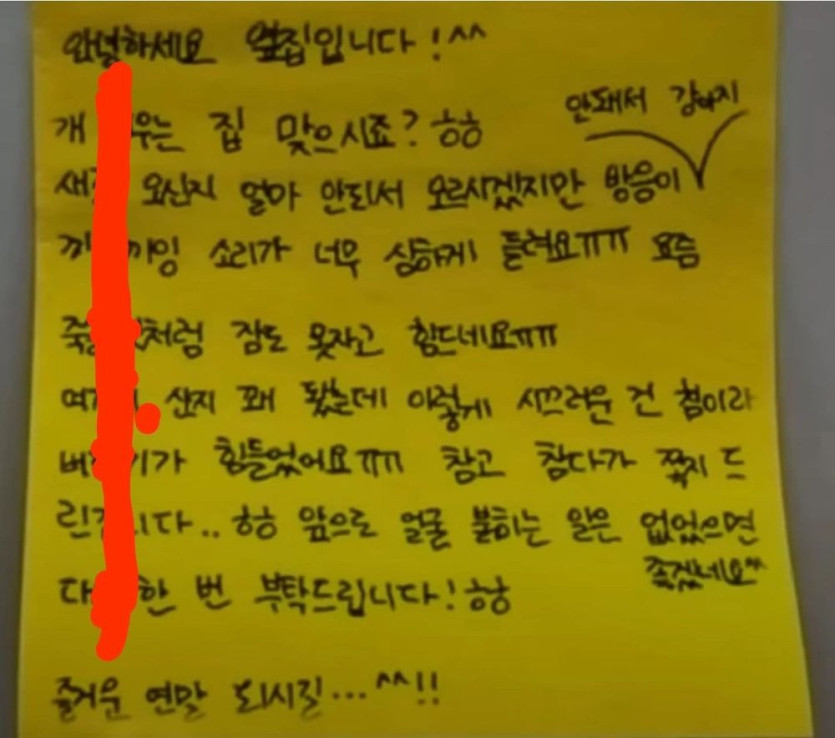 안녕하세요 옆집입니다!^^
개 는 집 맞으시죠? ㅎㅎ
안돼서 강아지
오신지 얼마 안되서 모르시겠지만 방음이
끼잉 소리가 너무 심하게 들려요ㅠㅠ 요즘
처럼 잠도 못자고 힘드네요ㅠㅠ
산지 꽤 됐는데 이렇게 시끄러운 건 첨이라
가 힘들었어요ㅠㅠ 참고 참다가 쪽지 드
니다.. ㅎㅎ 앞으로 얼굴 붉히는 일은 없었으면
좋겠네요^^
한 번 부탁드립니다! ㅎㅎ
즐거운 연말 되시길...^^!!